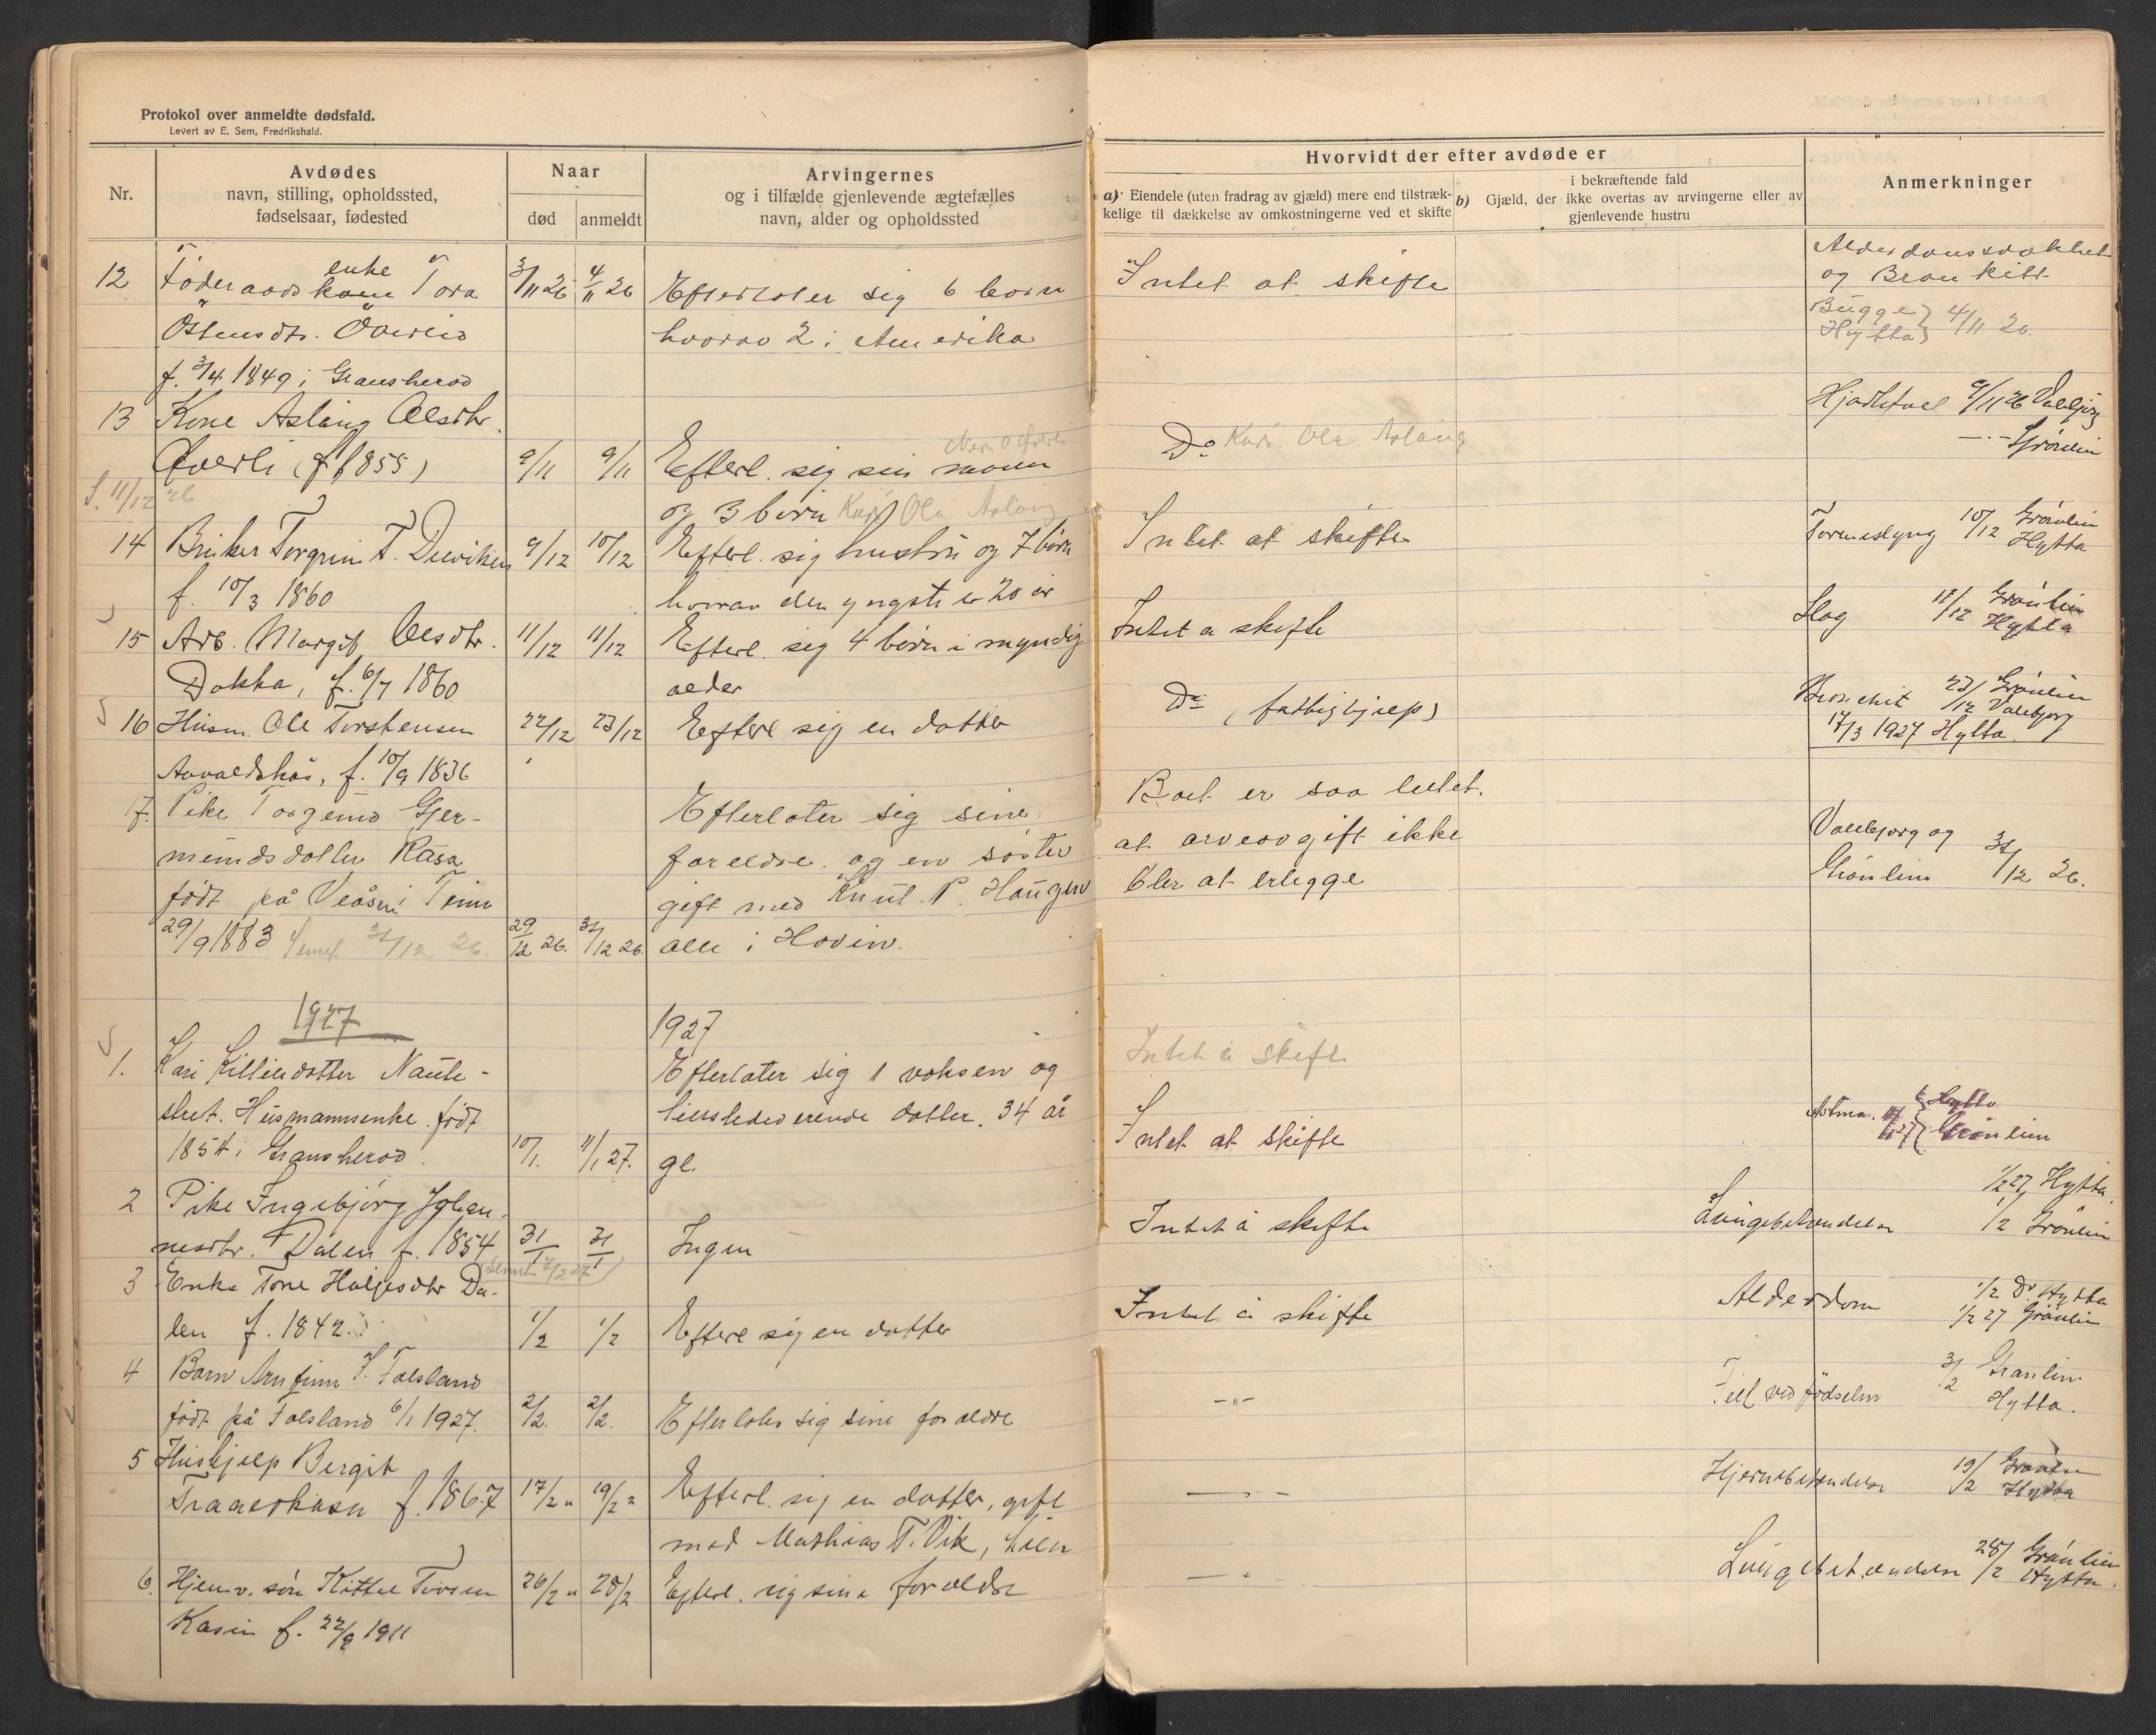 Protokol over anmeldte dødsfald.
Levert av E. Sem, Fredrikshald.
Nr.
Avdødes
navn, stilling, opholdssted,
fødselsaar, fødested
Naar
død
anmeldt
Arvingernes
og i tilfælde gjenlevende ægtefælles
navn, alder og opholdssted
Hvorvidt der efter avdøde er
a) Eiendele (uten fradrag av gjæld) mere end tilstræk-
kelige til dækkelse av omkostningerne ved et skifte
b)
i bekræftende fald
Gjæld, der ikke overtas av arvingerne eller av
gjenlevende hustru
Anmerkninger
12 Föderaads enke Tora 3/11 26 4/11 26 Efterlater sig 6 born Intet at skifte
og Bronkitt
Östensdtr. Överlid hvorav 2 i Amerika
Bugge
Hytta 4/11 26.
f. 3/4 1849 i Gransherad
13 Kone Aslaug Olsdtr.
Överli (f 1855) 9/11 9/11 Efterl. sig sin mann Do Kari Ola Aslaug
9/11 26 Valebjørg
Grönlien
11/12 26
og 3 børn Kari Ola Aslaug
14 Torgrim T. 9/12 10/12 Efterl. sig hustru og 7 børn Intet at skifte
10/12 Grönlien
Hytta
f. 10/3 1860 hvorav den yngste er 20 år
15 Arb. Margit Olsdtr. 11/12 11/12 Efterl. sig 4 børn i myndig Intet a skifte
Slag 11/12 Grönlien
Hytta
Dokka, f. 6/7 1860 alder
16 Husm. Ole Torstensen 22/12 23/12 Efterl sig en datter Do (fattighjelp)
Bronchit 23/12 Grönlien
Valebjørg
17/3 1927 Hytta
f. 10/9 1836
17. Pike Torgund Gjer- Efterlater sig sine Boet er saa litet.
mundsdotter Kåsa foreldre og en søster at arveavgift ikke
Valebjørg og
Grönlien 31/12 26.
født på i Tinn gift med Knut P. Haugen blir at erlegge
29/9 1883 31/12 26. 29/12 26. 31/12 26 alle i Hovin.
1927
1927
1. Kari Killiendotter Naute- Efterlater sig 1 voksen og Intet å skifte
stret. Husmannsenke født datter. 34 år Intet at skifte
Astma. Hytta
Grönlien
1854 i Gransherad. 10/1. 11/1 27. gl.
2 Pike Ingebjörg Johan-
nesdtr. Dalen f. 1854 31/1 31/1 Ingen Intet å skifte
1/2 27 Hytta.
1/2 Grönlien
3 Enke Tone Haljesdtr Da-
len f. 1842. 1/2 1/2 Efterl sig en datter Intet å skifte
Alderdom 1/2 Dr. Hytta
1/2 27 Grönlien
4 Barn Arnfinn T. Følsland
født på Følsland 6/1 1927. 2/2. 2/2. Efterlater sig sine foreldre -"-
Feil ved födselen 3/2 Grönlien
Hytta.
5 Hushjelp Bergit
f. 1867 17/2 " 19/2 " Efterl. sig en datter, gift -"-
19/2 Grönlien
Hytta
med Mathias T. Vik,
6. Hjemv. søn Kittel 26/2 " 28/2 Efterl. sig sine foreldre -"-
Lungebetændelse 28/2 Grönlien
Hytta.
Kasin f. 22/9 1911